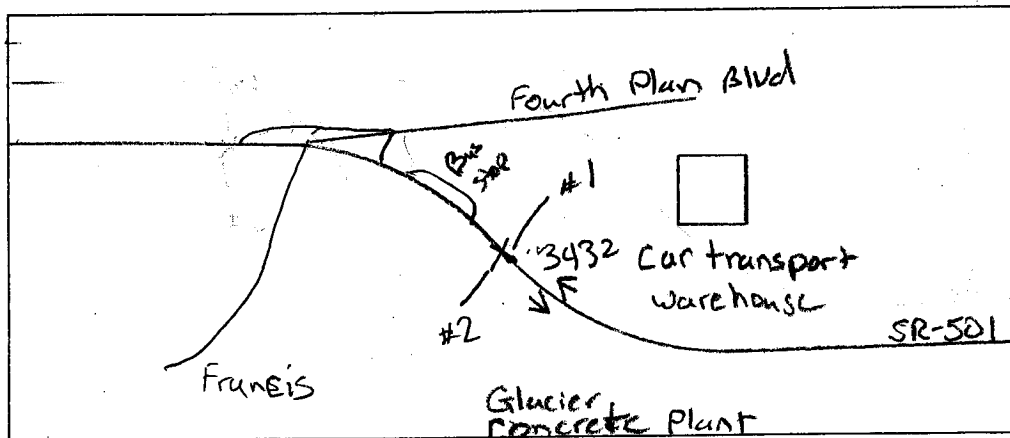 Fourth Plan Blvd
Bus
Stop
#1
3432 Car transport
warehouse
#2
SR-501
Francis
Glacier
Concrete Plant